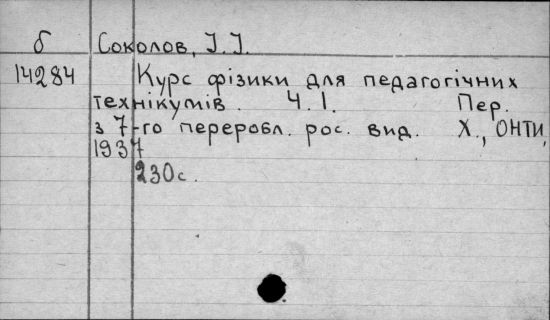 б Соколов, І.І.
14284 Курс фізики для педагогічних
технікумів. Ч. І. Пер.
з 7-го переробл. рос. вид. Х., ОНТИ,
1937
230с.